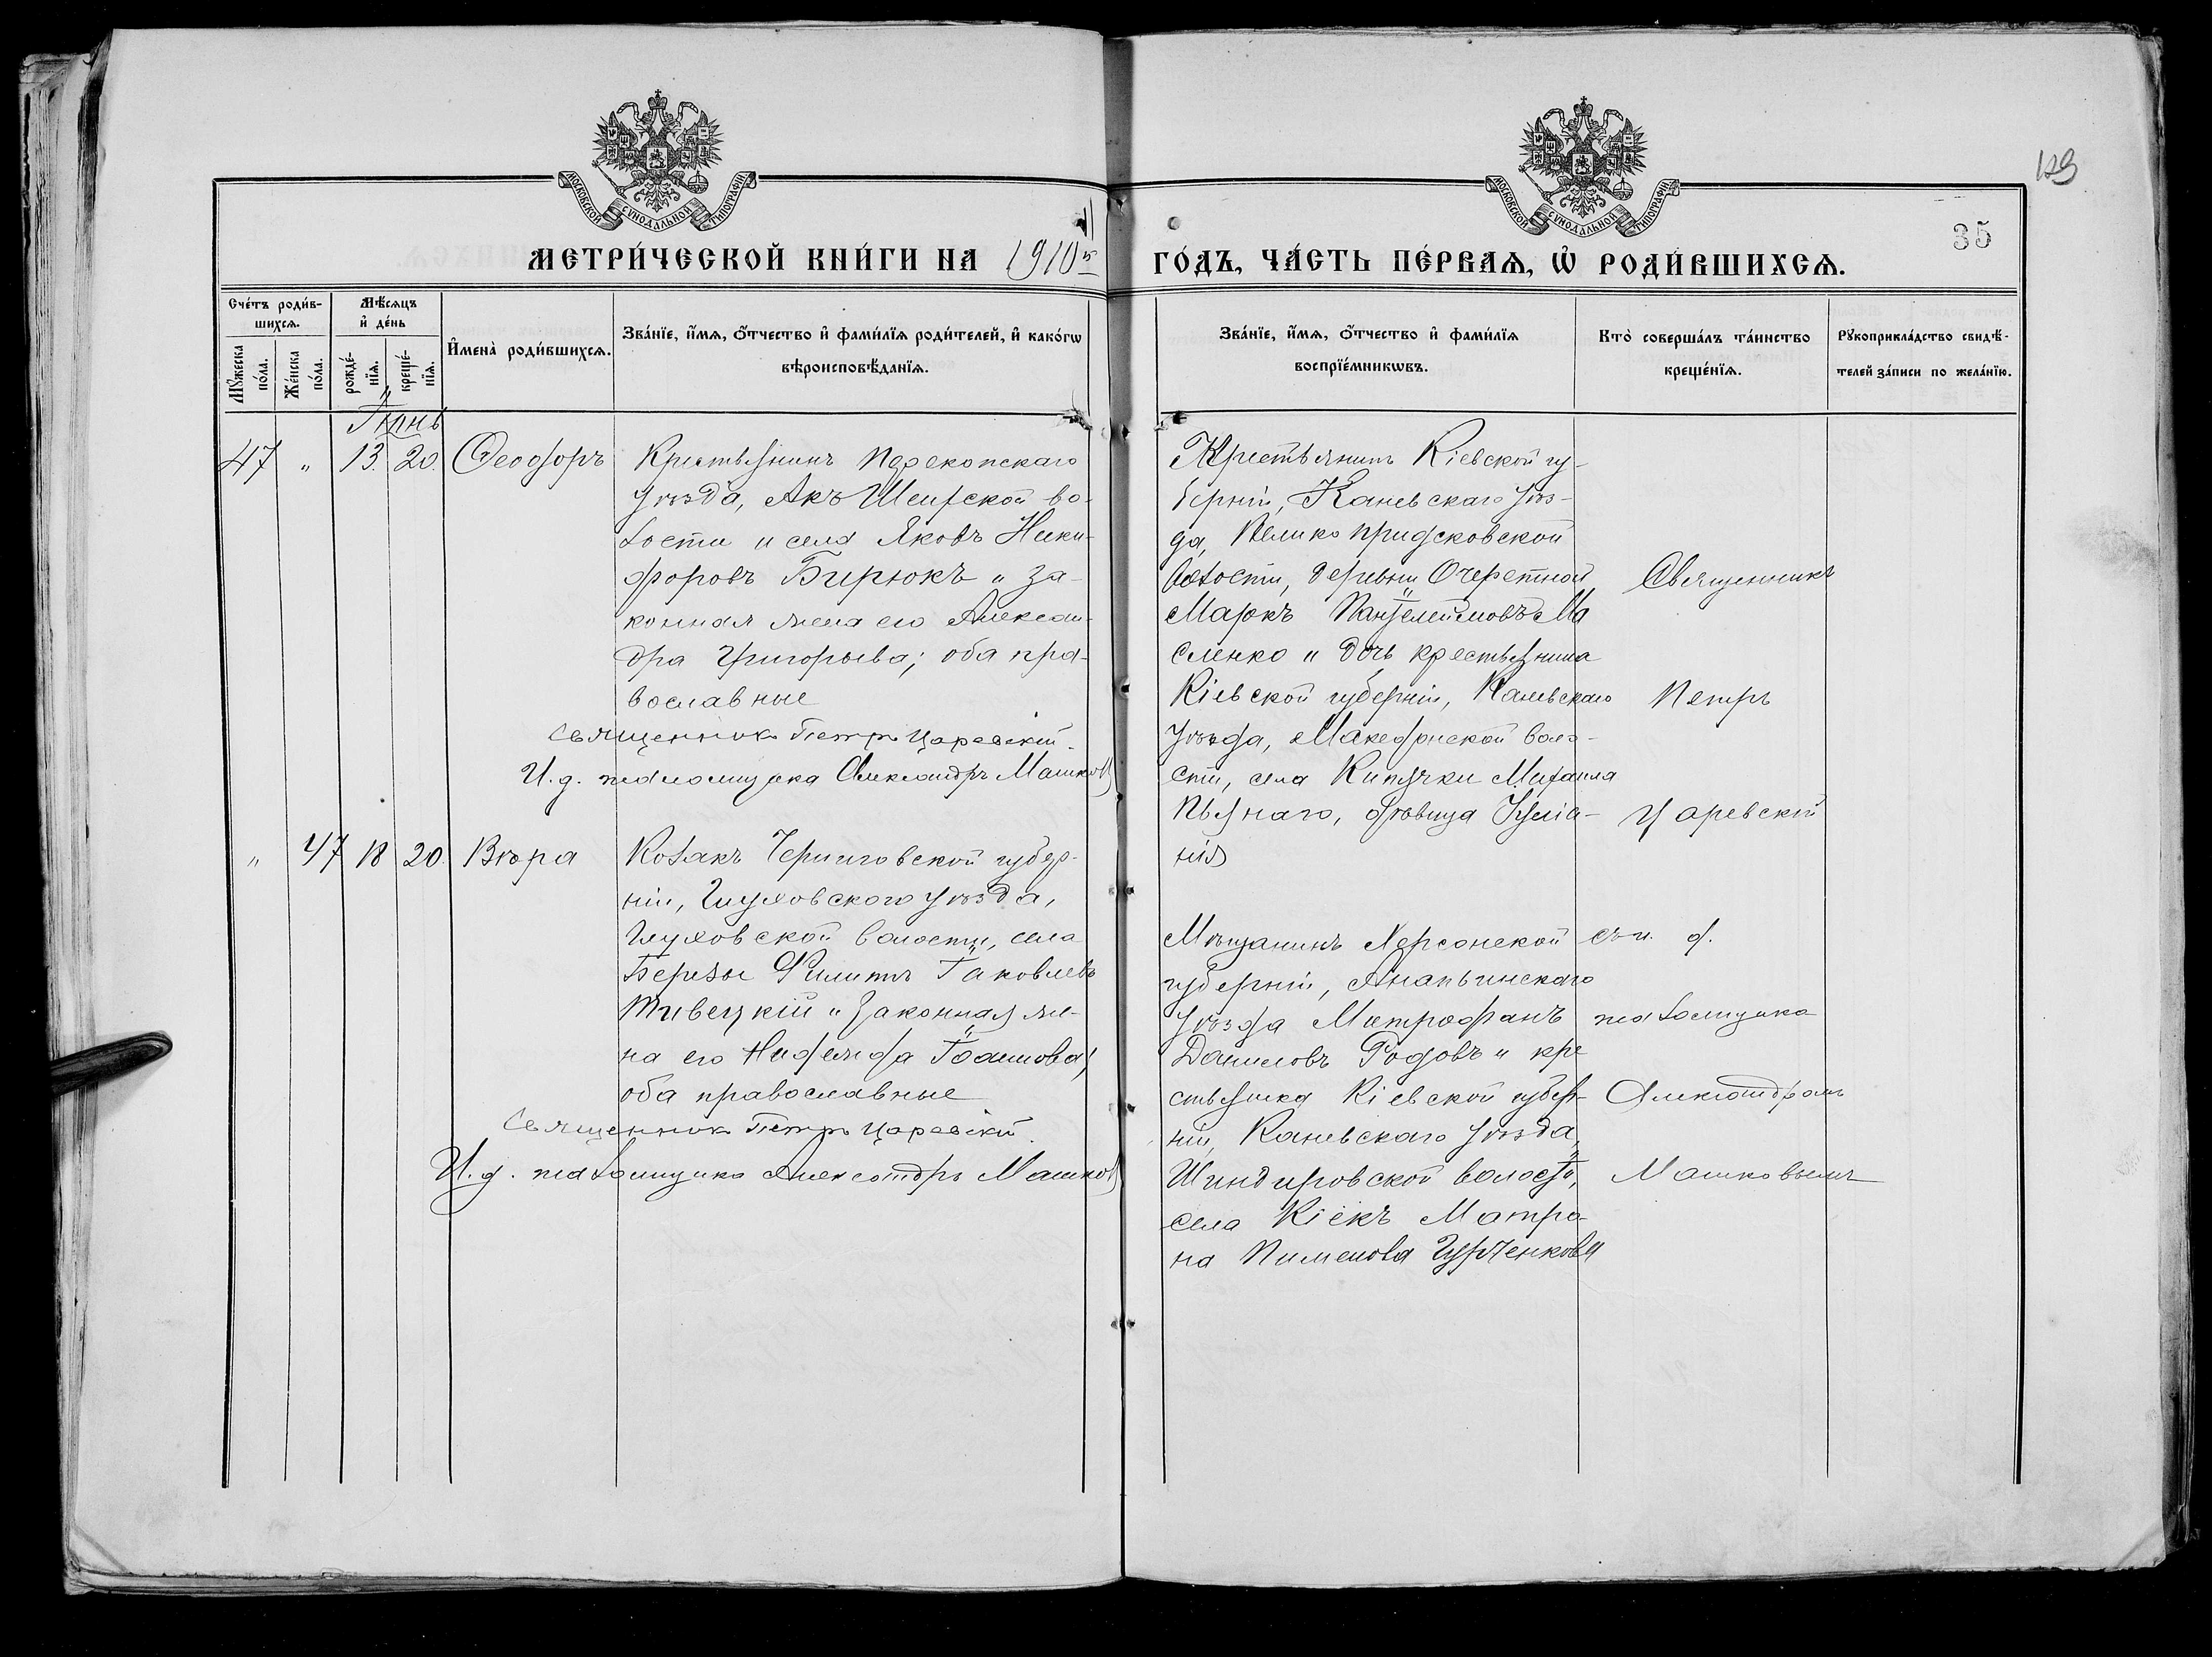 129
35
МОСКОВСКОЙ СѴНОДАЛЬНОЙ ТИПОГРАФІИ
МОСКОВСКОЙ СѴНОДАЛЬНОЙ ТИПОГРАФІИ
МЕТРИ́ЧЕСКОЙ КНИ́ГИ НА 1910й
ГО́ДЪ, ЧА́СТЬ ПЕ́РВАѦ, Ѿ РОДИ́ВШИХСѦ.
Сче́тъ роди́в-
шихсѧ.
Мꙋ́жеска по́ла.
Же́нска по́ла.
Мѣ́сѧцъ и҆ де́нь
рожде́-
нїѧ.
креще́-
нїѧ.
И҆мена̀ роди́вшихсѧ.
Зва́нїе, и҆́мѧ, ѻ҆́тчество и҆ фами́лїѧ роди́телей, и҆ како́гѡ
вѣроисповѣ́данїѧ.
Зва́нїе, и҆́мѧ, ѻ҆́тчество и҆ фами́лїѧ
воспрїе́мникѡвъ.
Кто̀ соверша́лъ та́инство
креще́нїѧ.
Рꙋкоприкла́дство свидѣ́-
телей за́писи по жела́нїю.
Іюнь
47 " 13. 20. Ѳеодоръ
Крестьянинъ Перекопскаго
уѣзда, Акъ Шеихской во-
лости и села Яковъ Ники-
форовъ Бирюкъ и за-
конная жена его Алексан-
дра Григорьева; оба пра-
вославные
Священник Петръ Царевскій.
И. д. псаломщика Александръ Машков
Крестьянинъ Кіевской гу-
берніи, Каневскаго уѣз-
да,
волости, деревни Очеретной
Маркъ Пантелеймовъ Ма
сленко и дочь крестьянина
Кіевской губерніи, Каневскаго
уѣзда, волo-
сти, села Кипячки Михаила
Пьянаго, дѣвица Куліа-
нія
Священникъ
Петръ
Царевскій
" 47 18 20. Вѣра
Козакъ Черниговской губер-
ніи, Глуховского уѣзда,
Глуховской волости, села
Березы Филиппъ Іаковлевъ
и законная же-
на его Іоаннова;
оба православные
Священник Петръ Царевскій.
И. д. псаломщика Александръ Машков
Мѣщанинъ Херсонской
губерніи, Ананьинскаго
уѣзда Митрофанъ
Даниловъ Родовъ и кре
стьянка Кіевской губер-
ніи, Каневскаго уѣзда,
волости,
села Матро-
на Пименова
съ и. д.
псаломщика
Александромъ
Машковымъ